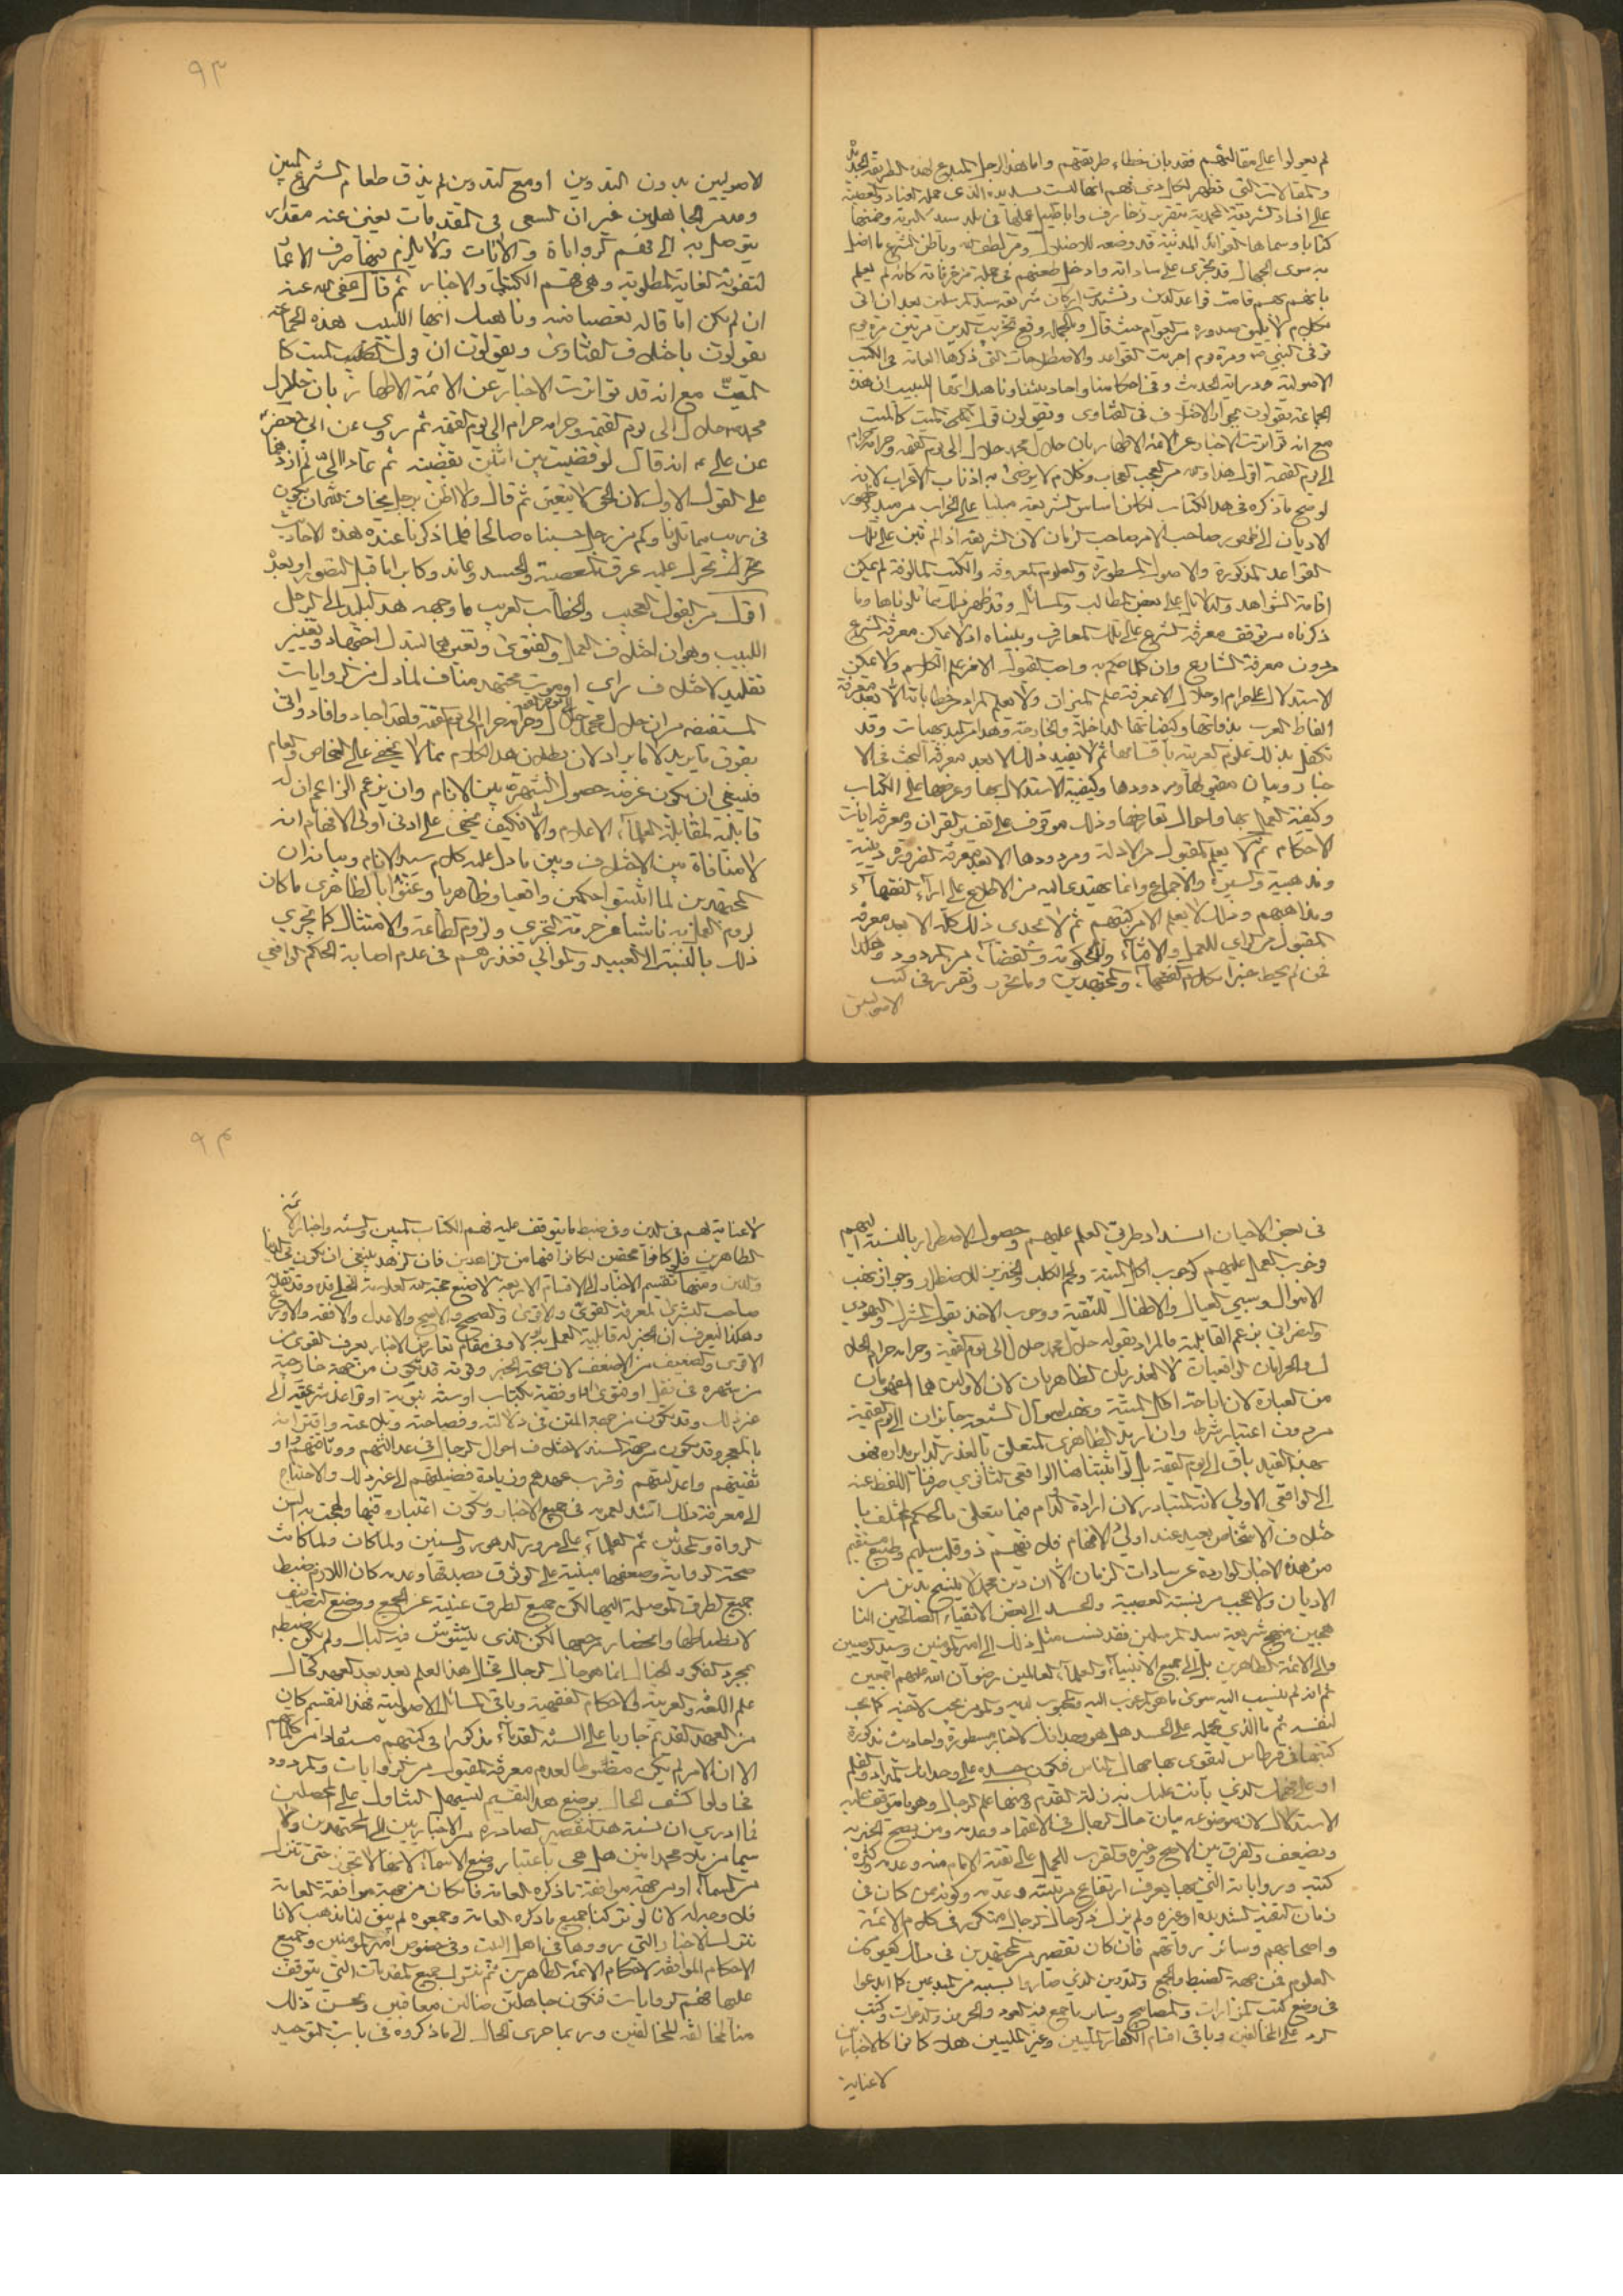 لم يعولوا على مقالتهم فقد بان خطاء طريقتهم واما هذا الرجل المبدع لهذه الطريقة الجديدة
والمقالات التي تظهر لكل ذي فهم انها ليست سديدة الذي حمله العناد والعصبية
على افساد الشريعة المحمدية بتقرير زخارف واباطيل في بلد سيد البرية وضمنها
كتابا وسماها الفوائد المدنية قد وضعه للاضلال ومن لطف الله وباطن الشرع ما اضل
به سوى الجهال قد تجرى على ساداته وادخل طعنهم في جملة مزخرفاته كانه لم يعلم
بانهم بهم قامت قواعد الدين وتشيدت اركان شريعة سيد المرسلين بعد ان اتى
بكلام لا يليق صدوره من العوام حيث قال وبالجملة وقع تخريب الدين مرتين مرة يوم
توفى النبي ص ومرة يوم اجريت القواعد والاصطلاحات التي ذكرها العامة في الكتب
الاصولية ودراية الحديث وفي احكامنا واحاديثنا وناهيك ايها اللبيب ان هذه
الجماعة يقولون بجواز الاختلاف في الفتاوى ويقولون قول الميت كالميت
مع انه تواترت الاخبار عن الائمة الاطهار بان حلال محمد حلال الى يوم القيمة وحرامه حرام
الى يوم القيمة اقول هذا والله من العجب العجاب وكلام لا يرضى به اذناب الاعراب لانه
لو صح ما ذكره في هذا الكتاب لكان اساس الشريعة مبنيا على الخراب من مبدء ظهور
الاديان الى ظهور صاحب الامر صاحب الزمان لان الشريعة اذا لم تبن على تلك
القواعد المذكورة والاصول المسطورة والعلوم المعروفة والكتب المالوفة لم يمكن
اقامة الشواهد والدلائل على بعض المطالب والمسائل وقد ظهر ذلك مما تلوناها وما
ذكرناه من توقف معرفة الشرع على تلك المعارف وبيناه اذ لا يمكن معرفة الشرع
بدون معرفة الشارع وان كلما صح به واجب القبول الا من علم الكلام ولا يمكن
الاستدلال على حرام او حلال الا بمعرفة علم الميزان ولا يعلم المراد من خطاباته الا بعد معرفة
الفاظ العرب بذواتها وكيفياتها الداخلة والخارجة وهذا من البديهيات وقد
تكفل بذلك علوم العربية باقسامها ثم لا يفيد ذلك الا بعد معرفة البحث في الا
خبار وبيان مقبولها ومردودها وكيفية الاستدلال بها وعرضها على الكتاب
وكيفية العمل بها واحوال تعارضها وذلك موقوف على تفسير القران ومعرفة ايات
الاحكام ثم لا يعلم المقبول من الادلة ومردودها الا بعد معرفة الضرورة دينية
ومذهبية والسيرة والاجماع وانما يهتدى اليه من الاطلاع على اراء الفقهاء
ومذاهبهم وذلك لا يعلم الا من كتبهم ثم لا يجدى ذلك كله الا بعد معرفة
المقبول من الراي للعمل والافتاء والحكومة والقضاء من المردود وهكذا
فمن لم يحط خبرا بكلام الفقهاء والمجتهدين وما تحرر وتقرر في كتب
الاصوليين
٩٣
الاصوليين بدون التدوين او مع التدوين لم يذق طعام الشرع المبين
وعد من الجاهلين غير ان السعى في المقدمات يغنى عنه مقدار
يتوصل به الى فهم الروايات والايات ولا يلزم فيها صرف الاعمار
لتفوته الغاية المطلوبة وهي فهم الكتاب والاخبار ثم قال عفى الله عنه
ان لم يكن اما قاله تعصبا منه وناهيك ايها اللبيب هذه الجماعة
يقولون باختلاف الفتاوى ويقولون ان قول الميت كا
لميت مع انه قد تواترت الاخبار عن الائمة الاطهار بان حلال
محمد حلال الى يوم القيمة وحرامه حرام الى يوم القيمة ثم روى عن ابي جعفر
عن علي ع انه قال لو قضيت بين اثنين بقضية ثم عادا الي لم ازدهما
على القول الاول لان الحق لا يتغير ثم قال ولا اظن برجل يخاف الله ان يكون
في ريب مما تلونا وكم من رجل حسبناه صالحا فلما ذكرنا عنده هذه الاحاديث
تحرك عليه عرق العصبية والحسد وعاند وكابر اما قبل التصور او بعده
اقول من القول العجيب والخطاب الغريب ما وجهه هذا البليد الى الرجل
اللبيب وهو ان اختلاف العمل والفتوى وتغيرهما لتبدل اجتهاد وتغيير
تقليد لاختلاف راي او موت مجتهد مناف لما دل من الروايات
المستفيضه من ان حلال محمد حلال الى يوم القيمة وحرامه حرام الى يوم القيمة ولقد اجاد وافاد واتى
بفوق ما يريد الا ما يراد لان بطلان هذا الكلام مما لا يخفى على الخاص والعام
فينبغي ان يكون غرضه حصول الشهرة بين الانام وان يزعم الزاعم ان له
قابلية لمقابلة العلماء الاعلام والا فكيف يخفى على ادنى اولى الافهام انه
لا منافاة بين الاختلاف وبين ما دل عليه كلام سيد الانام وبيانه ان
المجتهدين لما اثبتوا حكمين واقعيا وظاهريا وعنوا بالظاهري ما كان
لزوم العمل به ناشئا من حرمة التجري ولزوم الطاعة والامتثال كما يجري
ذلك بالنسبة الى العبيد والموالي فعذرهم في عدم اصابة الحكم الواقعي
في بعض الاحيان انسداد طريق العلم عليهم وحصول الاضطرار بالنسبة اليهم
فوجوب العمل عليهم كوجوب اكل الميتة ولحم الكلب والخنزير للاضطرار وجواز نهب
الاموال وسبي العيال والاطفال للتقية ووجوب الاخذ بقول المشرك واليهودي
والنصراني بزعم القابلية فالمراد بقوله حلال محمد حلال الى يوم القيمة وحرامه حرام الحلا
ل والحرام الواقعيان لا العذريان الظاهريان لان الاولين هما المفهومان
من العبارة لان اباحة اكل الميتة ونهب اموال الشيعة جايزان الى يوم القيمة
من دون اعتبار شرط وان اريد الظاهري المتعلق بالعذر الدائر مداره فهو
بهذا القيد باق الى يوم القيمة بل لو اثبتنا هنا الواقعي الثانوي صرفنا اللفظ عنه
الى الواقعي الاولي لانه المتبادر لان ارادة الدوام فيما يتعلق بالحكم المختلف با
ختلاف الاشخاص بعيد عند اولى الافهام فلا يفهم ذو قلب سليم وطبع مستقيم
من هذه الاخبار الواردة عن سادات الزمان الا ان دين محمد لا ينسخ بدين من
الاديان ولا عجب من نسبة العصبية والحسد الى بعض الاتقياء الصالحين النا
هجين منهج شريعة سيد المرسلين فقد نسب مثل ذلك الى امير المؤمنين وسيد الوصيين
والى الائمة الطاهرين بل الى جميع الانبياء والعلماء العاملين رضوان الله عليهم اجمعين
ثم انه لم ينسب اليه سوى ما هو المرغوب اليه والمحبوب لديه والمؤمن يحب لاخيه كما يحب
لنفسه ثم ما الذي يحمله على الحسد هل هو وجدانك لاخبار مسطورة واحاديث مذكورة
كتبتها في قرطاس لتقوى بها جهال الناس فيكون حسده على وجدان المداد والقلم
او على جهلك الذي بانت عليك به زلة القدم ومنها علم الرجال وهو ما يتوقف عليه
الاستدلال لان موضوعه بيان حال الرجال في الاعتماد وعدمه ومن يصح الخبر به
ويضعف والفرق بين الاصح وغيره والقرب للحمل على تقية الامام منه وعدمه وكثرة
كتبه ورواياته التي بها يعرف ارتفاع مرتبته وعدمه وكونه ممن كان في
زمان التقية الشديدة او غيره ولم يزل ذكر حال الرجال متكررا في كلام الائمة
واصحابهم وسائر رواتهم فان كان تقصير من المجتهدين في مثل هؤلاء
العلوم فمن جهة الضبط والجمع والتدوين الذي صاروا بسببه من المبدعين كما ابدعوا
في وضع كتب المزارات والمصابيح وساير ما جمع فيه العوذ والحروز والدعوات وكتب
الرد على المخالفين وباقي اقسام الكفار المليين وغير المليين هلا كانوا كالاخباريين
لا عناية
٩٤
لا عناية لهم في الدين وفي ضبط ما يتوقف عليه فهم الكتاب المبين والسنة واخبار الائمة
الطاهرين فلو كانوا محقين لكانوا فيها من الزاهدين فان الزهد ينبغي ان يكون في الدنيا
والدين ومنها تقسيم الاخبار الى الاقسام الاربعة لا ضيع بحجة
صاحب البشرى لمعرفة القوي والاقوى والصحيح والاصح والاعدل والافقه والاورع
وهكذا ليعرف ان الخبر له قابلية العمل به ام لا وفي مقام تعارض الاخبار يعرف القوى من
الاقوى والضعيف من الاضعف لان صحة الخبر وقوته قد تكون من جهة خارجية
من شهرة في نقل او فتوى او موافقة لكتاب او سنة نبوية او قواعد شرعية الى
غير ذلك وقد يكون من جهة المتن في دلالته وفصاحته وبلاغته واقترانه
بالمعجز وقد يكون من جهة السند لاختلاف احوال الرجال في عدالتهم ووثاقتهم او
تقيتهم واعدليتهم وقرب عهدهم وزيادة فضيلتهم الى غير ذلك والاحتياج
الى معرفة ذلك اشد لعمومه في جميع الاخبار ويكون اعتباره فيها
الرواة والمحدثين ثم العلماء على مرور الدهور والسنين ولما كان ولما كانت
صحة الرواية وضعفها مبنية على الوثوق بصدقها وعدمه كان اللازم ضبط
جميع الطرق الموصلة اليها لكن جميع الطرق غنية عن الجمع ووضع التصانيف
لانضباطها وانحصار مرجعها لكن الذي يتشوش فيه البال ولم يكن ضبطه
بمجرد الفكر والخيال انما هو حال الرجال فحال هذا العلم بعد بعد العهد كحال
علم اللغة والعربية والاحكام الفقهية وباقي المسائل الاصولية فهذا التقسيم كان
من العهد القديم جاريا على السنة القدماء مذكورا في كتبهم مستفادا من كلماتهم
الا ان الامر لم يكن مضبوطا لعدم معرفة المقبول من الروايات والمردود
فحاولوا كشف الحال بوضع هذا التقسيم ليسهل التناول على المحصلين
فما ادري ان نسبة هذا التقصير الصادرة من الاخباريين الى المجتهدين ولا
سيما من بلا محمد امين هل هي باعتبار وضع الاسماء لانها لا تجوز حتى تنزل
من السماء او من جهة موافقة ما ذكره العامة فان كان من جهة موافقة العامة
فلا وجه له لانا لو تركنا جميع ما ذكره العامة وجمعوه لم يبق لنا مذهب لانا
نترك الاخبار التي رووها في اهل البيت وفي خصوص امير المؤمنين وجميع
الاحكام الموافقة لاحكام الائمة الطاهرين ثم نترك جميع المقدمات التي يتوقف
عليها فهم الروايات فنكون جاهلين ضالين معاقبين ويحسن ذلك
منا المخالفة للمخالفين وربما جرى الحال الى ما ذكروه في باب التوحيد